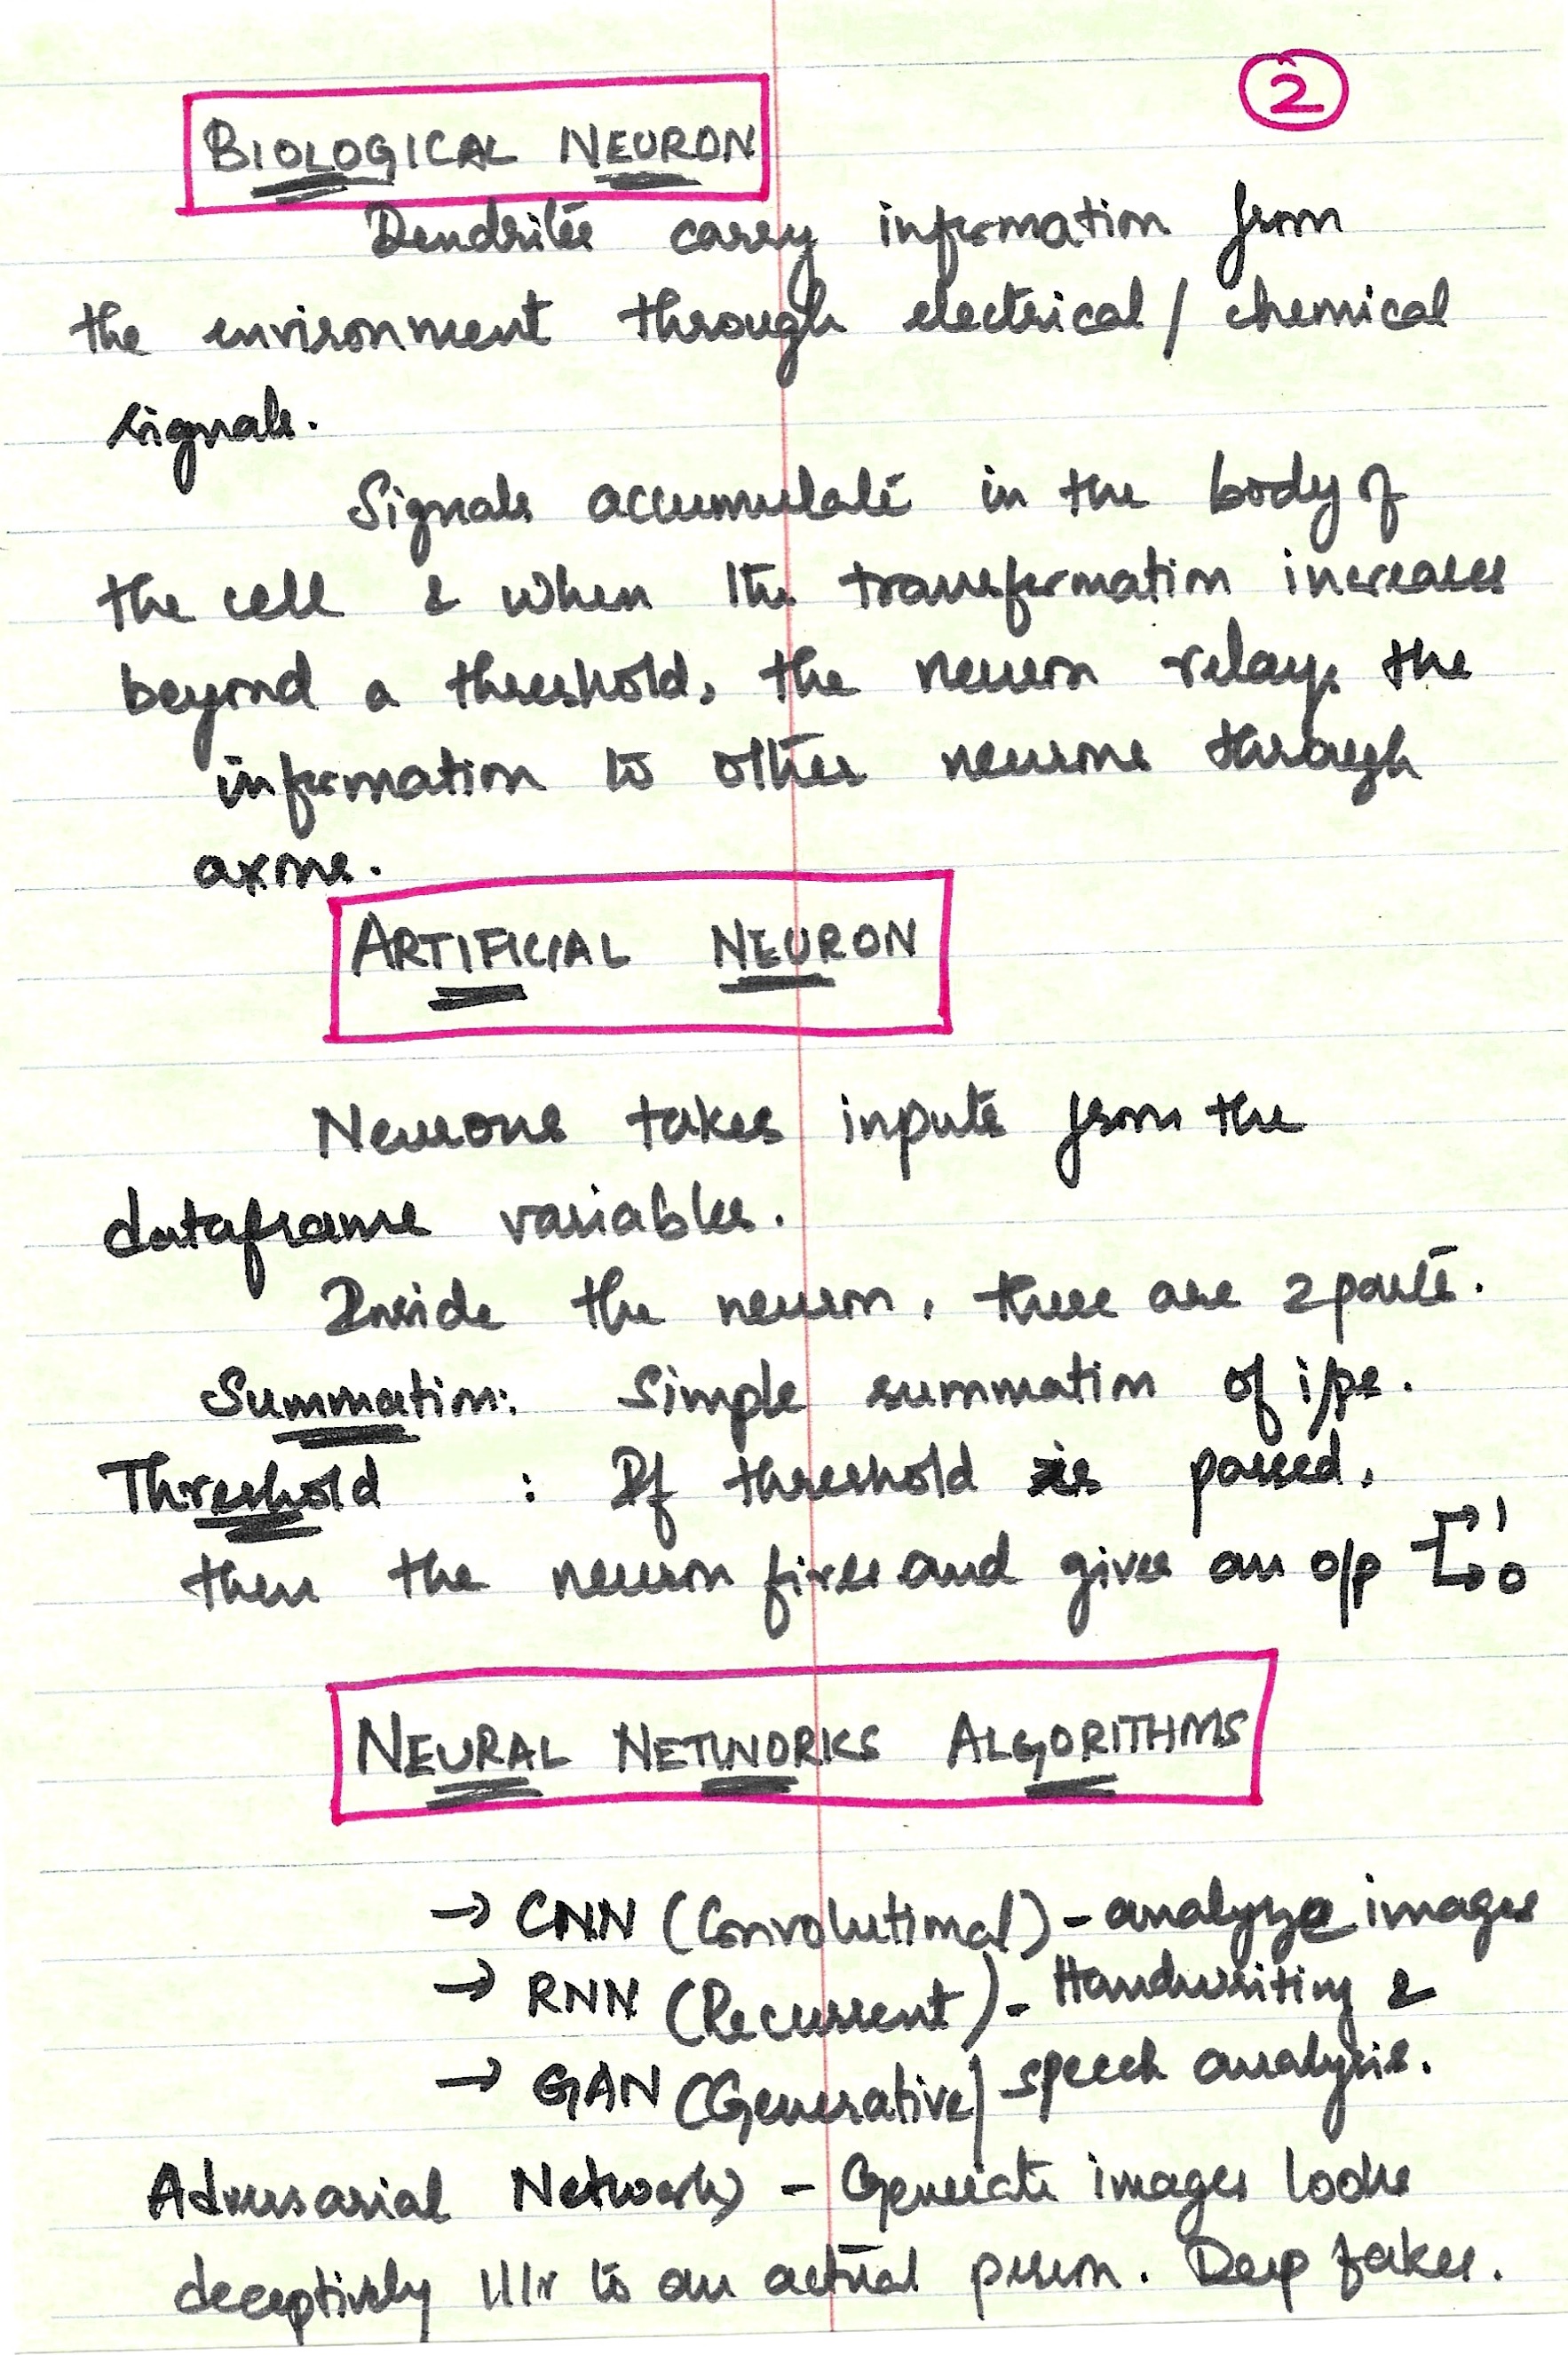 2
BIOLOGICAL NEURON
Dendrites carry information from
the environment through electrical / chemical
signals.
Signals accumulate in the body of
the cell & when the transformation increases
beyond a threshold, the neuron relays the
information to other neurons through
axons.
ARTIFICIAL NEURON
Neurons takes inputs from the
dataframe variables.
Inside the neuron, there are 2 parts.
Summation: Simple summation of i/ps.
Threshold : If threshold is passed,
then the neuron fires and gives an o/p → 1
→ 0
NEURAL NETWORKS ALGORITHMS
→ CNN (Convolutional) - analyze images
→ RNN (Recurrent) - Handwriting &
speech analysis.
→ GAN (Generative
Adversarial Network) - Generate images looks
deceptively |||r to an actual person. Deep fakes.